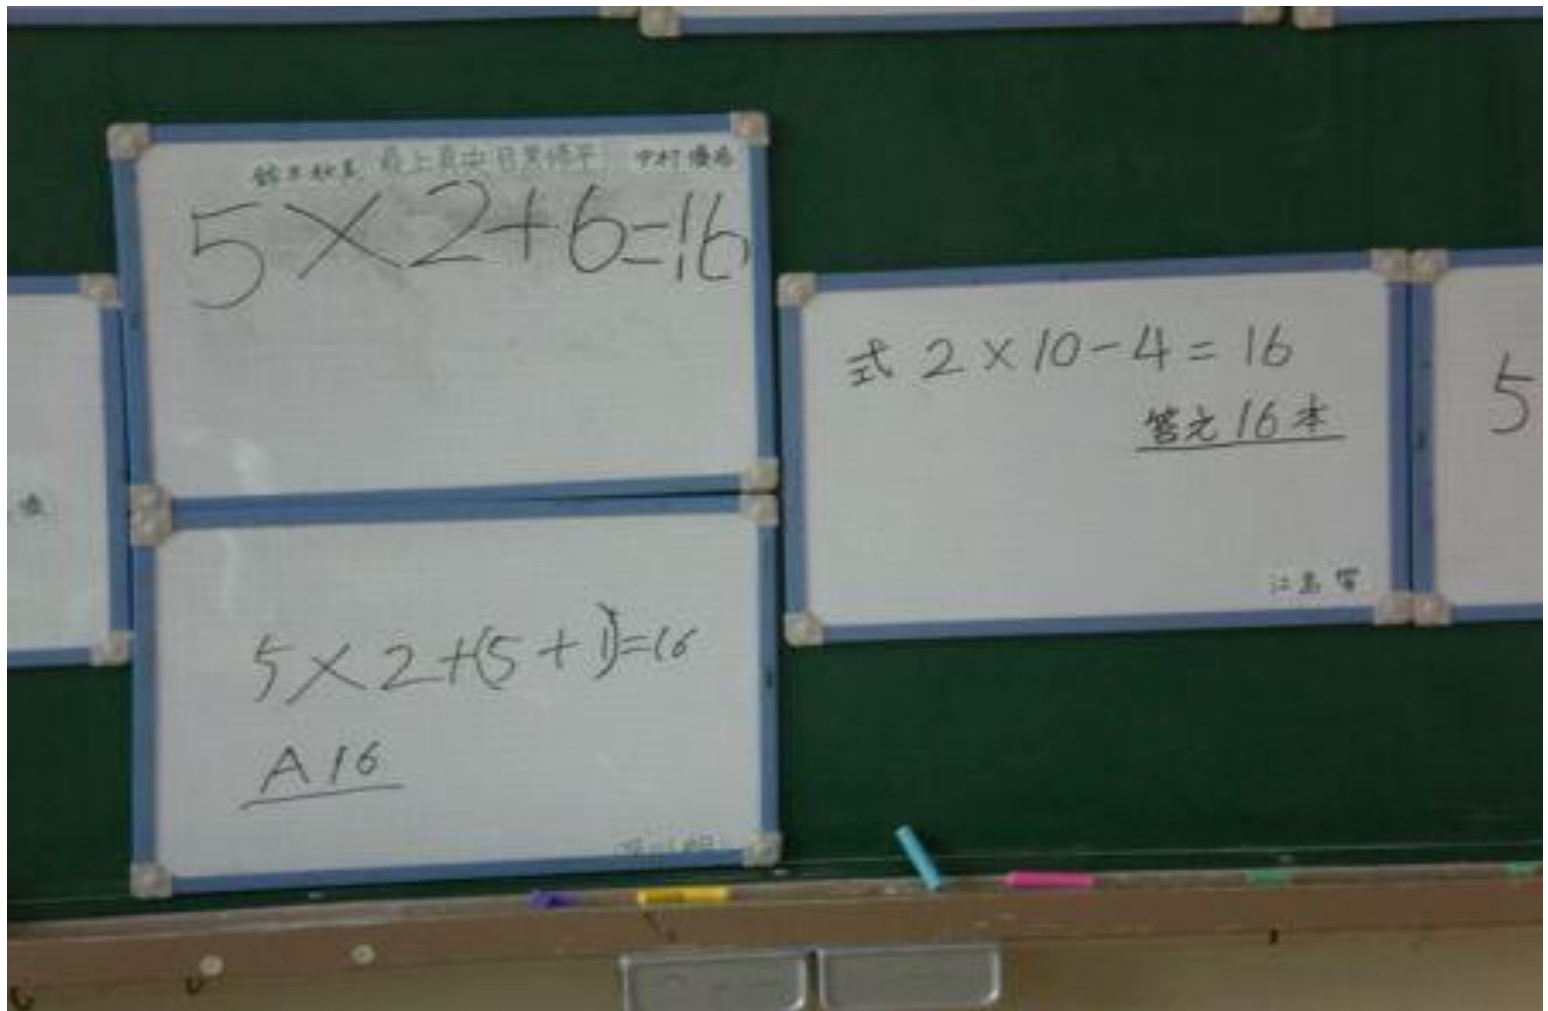 5×2+6=16
5×2+(5+1)=16
A16
式 2×10-4=16
答え16本
5